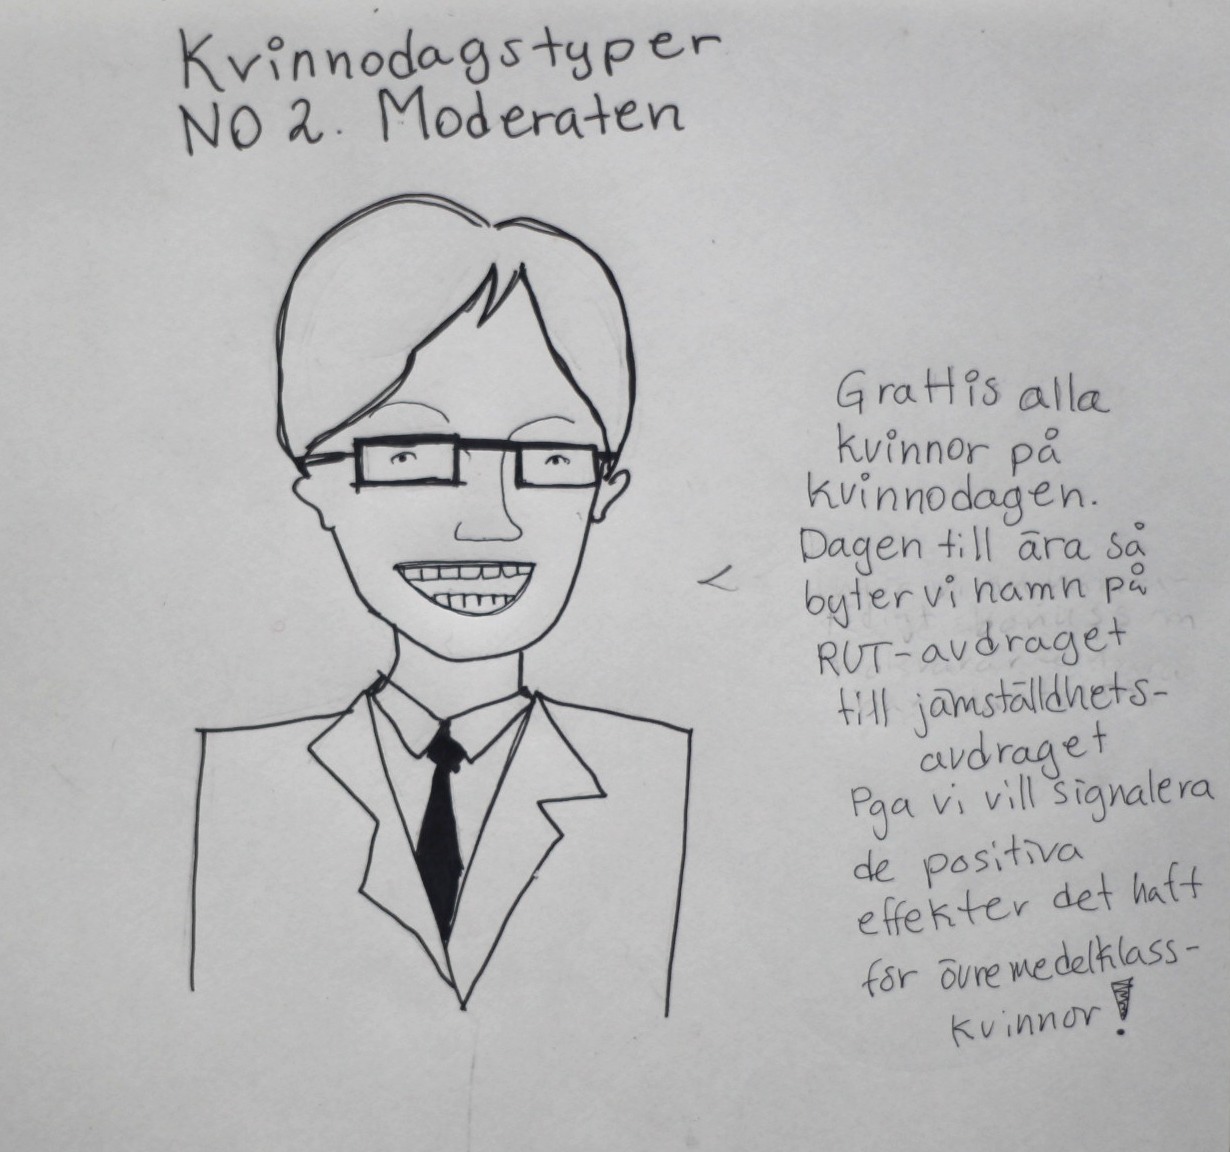 Kvinnodagstyper
NO 2. Moderaten
Grattis alla
kvinnor på
kvinnodagen.
Dagen till ära så
byter vi namn på
RUT-avdraget
till jämställdhets-
avdraget
Pga vi vill signalera
de positiva
effekter det haft
för övremedelklass-
kvinnor!